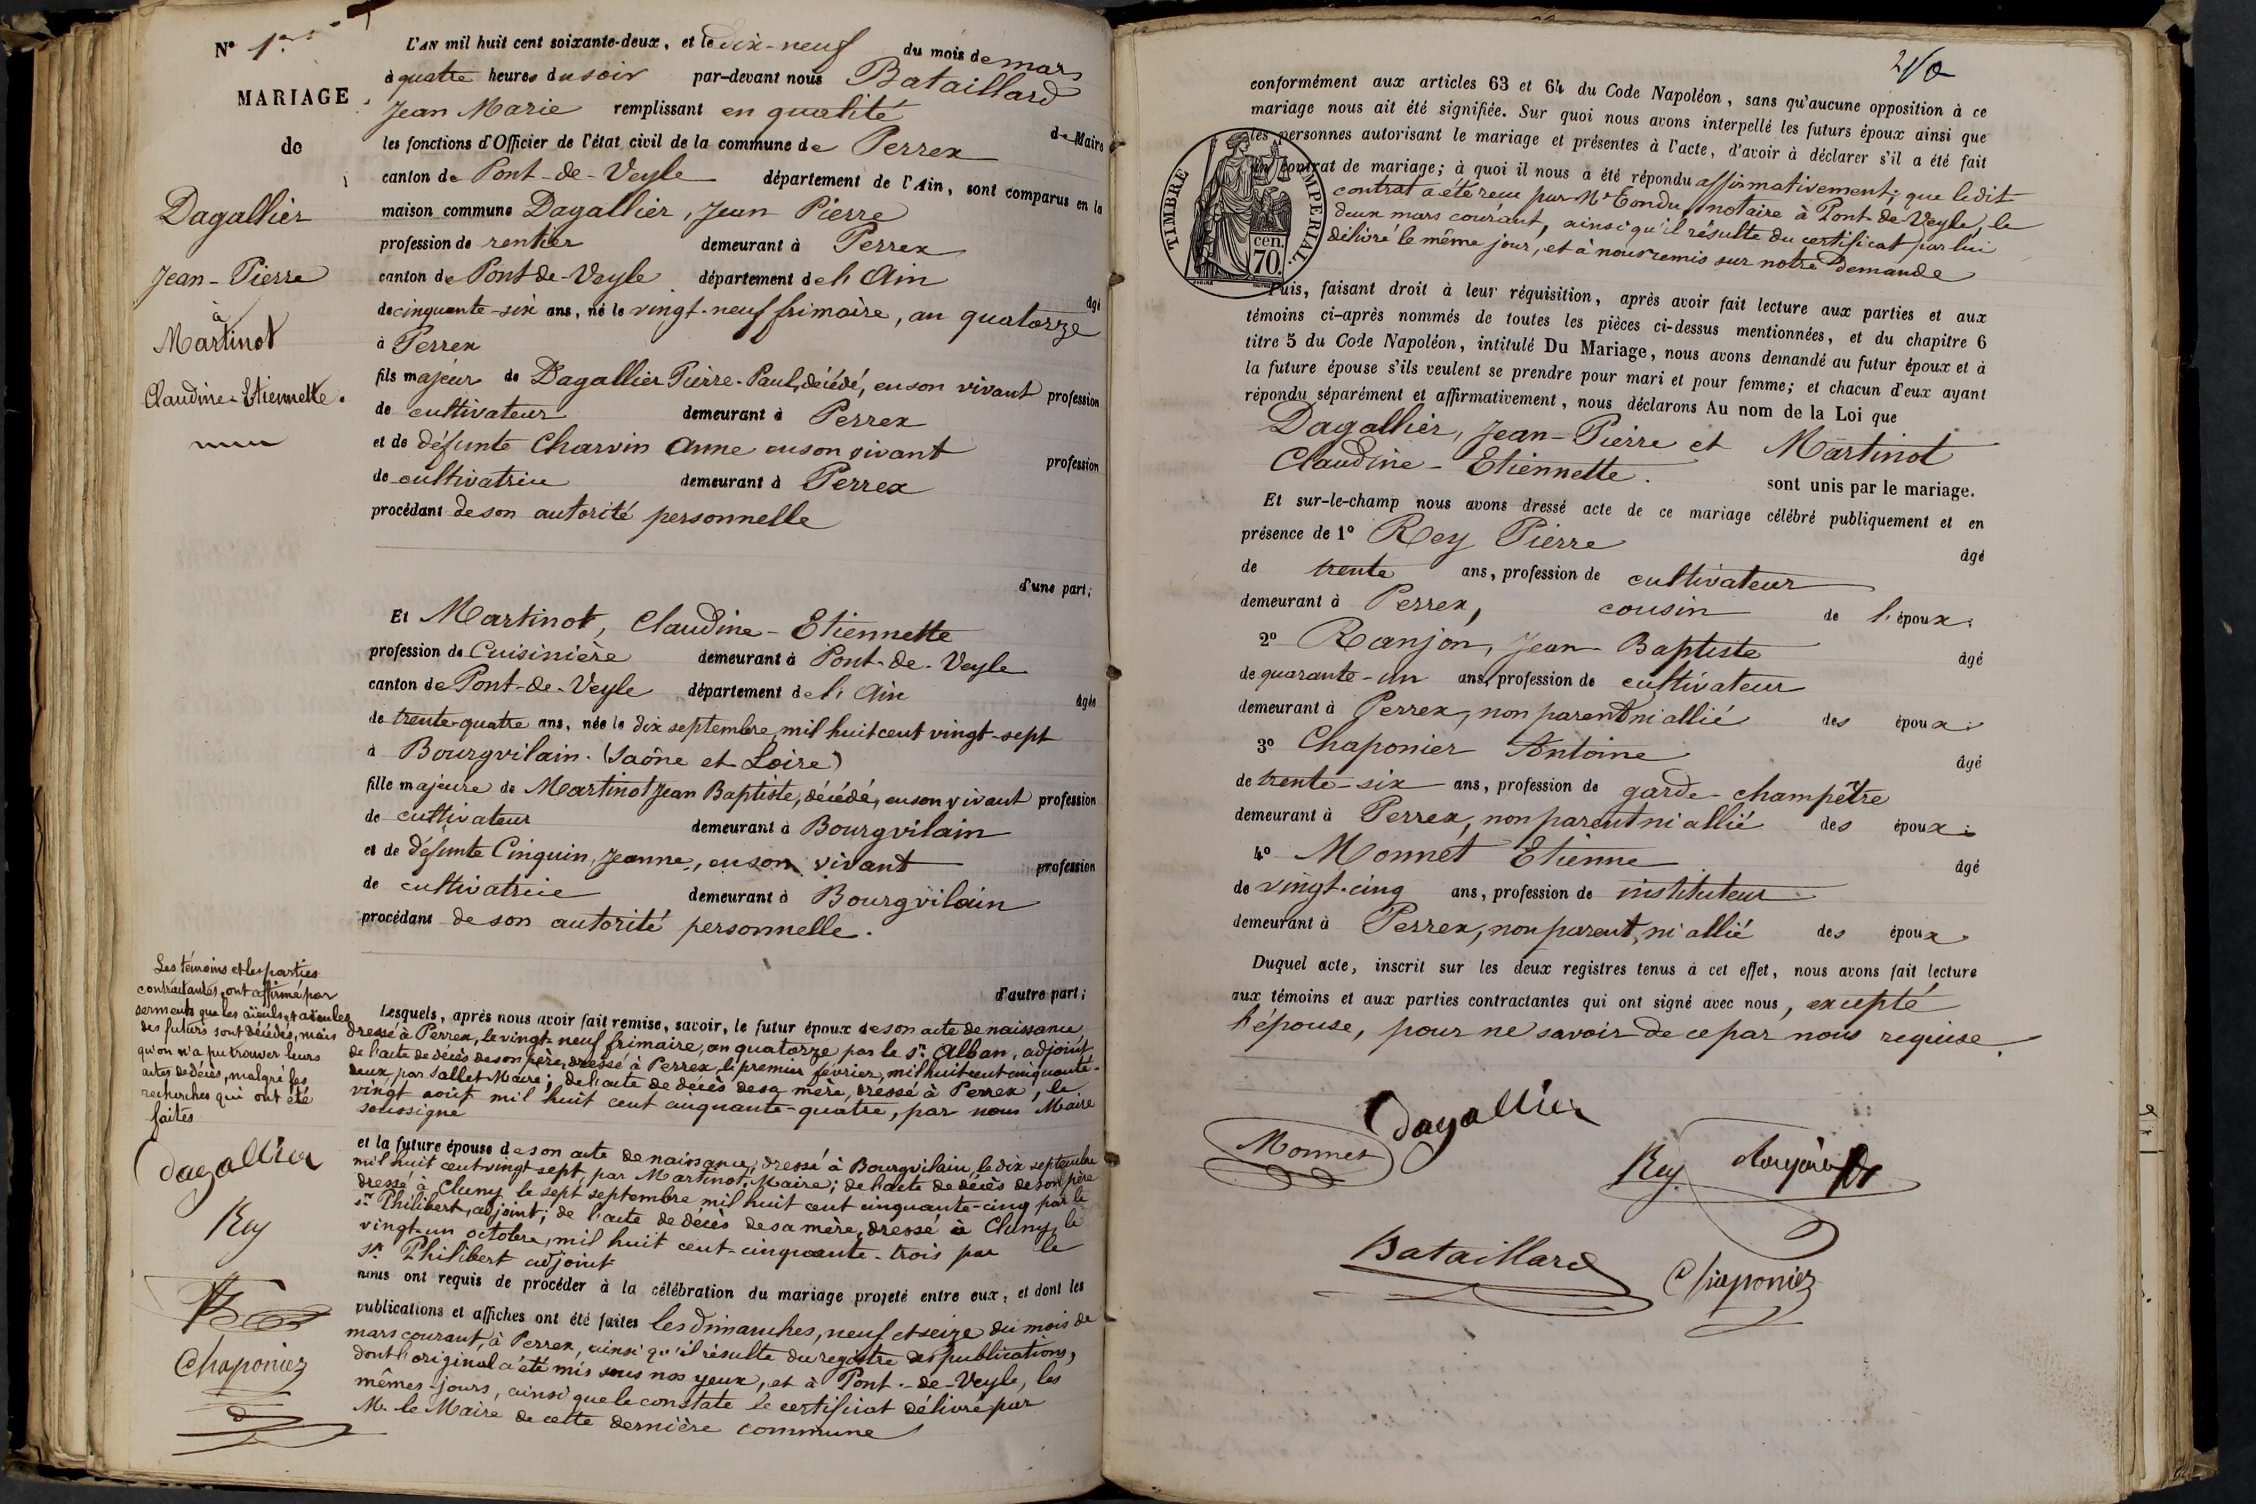 N° 1er
MARIAGE
de
Dagallier
Jean-Pierre
à
Martinot
Claudine-Etiennette.
L'AN mil huit cent soixante-deux, et le dix-neuf du mois de mars
à quatre heures du soir par-devant nous Bataillard
Jean Marie remplissant en qualité de Maire
les fonctions d'Officier de l'état civil de la commune de Perrex
canton de Pont-de-Veyle département de l'Ain, sont comparus en la
maison commune Dagallier, Jean Pierre
profession de rentier demeurant à Perrex
canton de Pont-de-Veyle département de l'Ain âgé
de cinquante-six ans, né le vingt-neuf frimaire, an quatorze
à Perrex
fils majeur de Dagallier Pierre-Paul, décédé, en son vivant profession
de cultivateur demeurant à Perrex
et de défunte Charvin Anne en son vivant profession
de cultivatrice demeurant à Perrex
procédant de son autorité personnelle
d'une part;
Et Martinot, Claudine-Etiennette
profession de Cuisinière demeurant à Pont-de-Veyle
canton de Pont-de-Veyle département de l'Ain âgée
de trente-quatre ans, née le dix septembre, mil huit cent vingt-sept
à Bourgvilain. (Saône et Loire)
fille majeure de Martinot Jean Baptiste, décédé, en son vivant profession
de cultivateur demeurant à Bourgvilain
et de défunte Cinquin, Jeanne, en son vivant profession
de cultivatrice demeurant à Bourgvilain
procédant de son autorité personnelle.
d'autre part;
Les témoins et les parties
contractantes, ont affirmé par
serments que les aïeuls et aïeules
des futurs sont décédés, mais
qu'on n'a pu trouver leurs
actes de décès, malgré les
recherches qui ont été
faites
Dagallier
Rey
Chaponier
Lesquels, après nous avoir fait remise, savoir, le futur époux de son acte de naissance
dressé à Perrex, le vingt-neuf frimaire, an quatorze par le sr. Alban, adjoint,
de l'acte de décès de son père, dressé à Perrex, le premier février, mil huit cent cinquante-
deux, par Sallet Maire; de l'acte de décès de sa mère, dressé à Perrex, le
vingt août mil huit cent cinquante-quatre, par nous Maire
soussigné
et la future épouse de son acte de naissance, dressé à Bourgvilain, le dix septembre
mil huit cent vingt sept, par Martinot, Maire; de l'acte de décès de son père
dressé à Cluny le sept septembre mil huit cent cinquante-cinq par le
sr. Philibert, adjoint; de l'acte de décès de sa mère, dressé à Cluny, le
vingt-un octobre, mil huit cent-cinquante-trois par le
sr. Philibert adjoint
nous ont requis de procéder à la célébration du mariage projeté entre eux, et dont les
publications et affiches ont été faites les dimanches, neuf et seize du mois de
mars courant, à Perrex, ainsi qu'il résulte du registre des publications,
dont l'original a été mis sous nos yeux, et à Pont-de-Veyle, les
mêmes-jours, ainsi que le constate le certificat délivré par
Mr. le Maire de cette dernière commune
conformément aux articles 63 et 64 du Code Napoléon, sans qu'aucune opposition à ce
mariage nous ait été signifiée. Sur quoi nous avons interpellé les futurs époux ainsi que
les personnes autorisant le mariage et présentes à l'acte, d'avoir à déclarer s'il a été fait
un contrat de mariage; à quoi il nous a été répondu affirmativement; que le dit
contrat a été reçu par Me Tondu, notaire à Pont-de-Veyle, le
deux mars courant, ainsi qu'il résulte du certificat par lui
délivré le même jour, et à nous remis sur notre demande
TIMBRE IMPERIAL.
cen.
70.
Puis, faisant droit à leur réquisition, après avoir fait lecture aux parties et aux
témoins ci-après nommés de toutes les pièces ci-dessus mentionnées, et du chapitre 6
titre 5 du Code Napoléon, intitulé Du Mariage, nous avons demandé au futur époux et à
la future épouse s'ils veulent se prendre pour mari et pour femme; et chacun d'eux ayant
répondu séparément et affirmativement, nous déclarons Au nom de la Loi que
Dagallier, Jean-Pierre et Martinot
Claudine-Etiennette. sont unis par le mariage.
Et sur-le-champ nous avons dressé acte de ce mariage célébré publiquement et en
présence de 1° Rey Pierre âgé
de trente ans, profession de cultivateur
demeurant à Perrex, cousin de l'époux.
2° Ranjon, Jean-Baptiste âgé
de quarante-un ans, profession de cultivateur
demeurant à Perrex, non parent ni allié des époux.
3° Chaponier Antoine âgé
de trente-six ans, profession de garde-champêtre
demeurant à Perrex, non parent ni allié des époux.
4° Monnet Etienne âgé
de vingt-cinq ans, profession de instituteur
demeurant à Perrex, non parent, ni allié des époux.
Duquel acte, inscrit sur les deux registres tenus à cet effet, nous avons fait lecture
aux témoins et aux parties contractantes qui ont signé avec nous, excepté
l'épouse, pour ne savoir de ce par nous requise.
Dagallier
Monnet
Rey
Bataillard
Chaponier